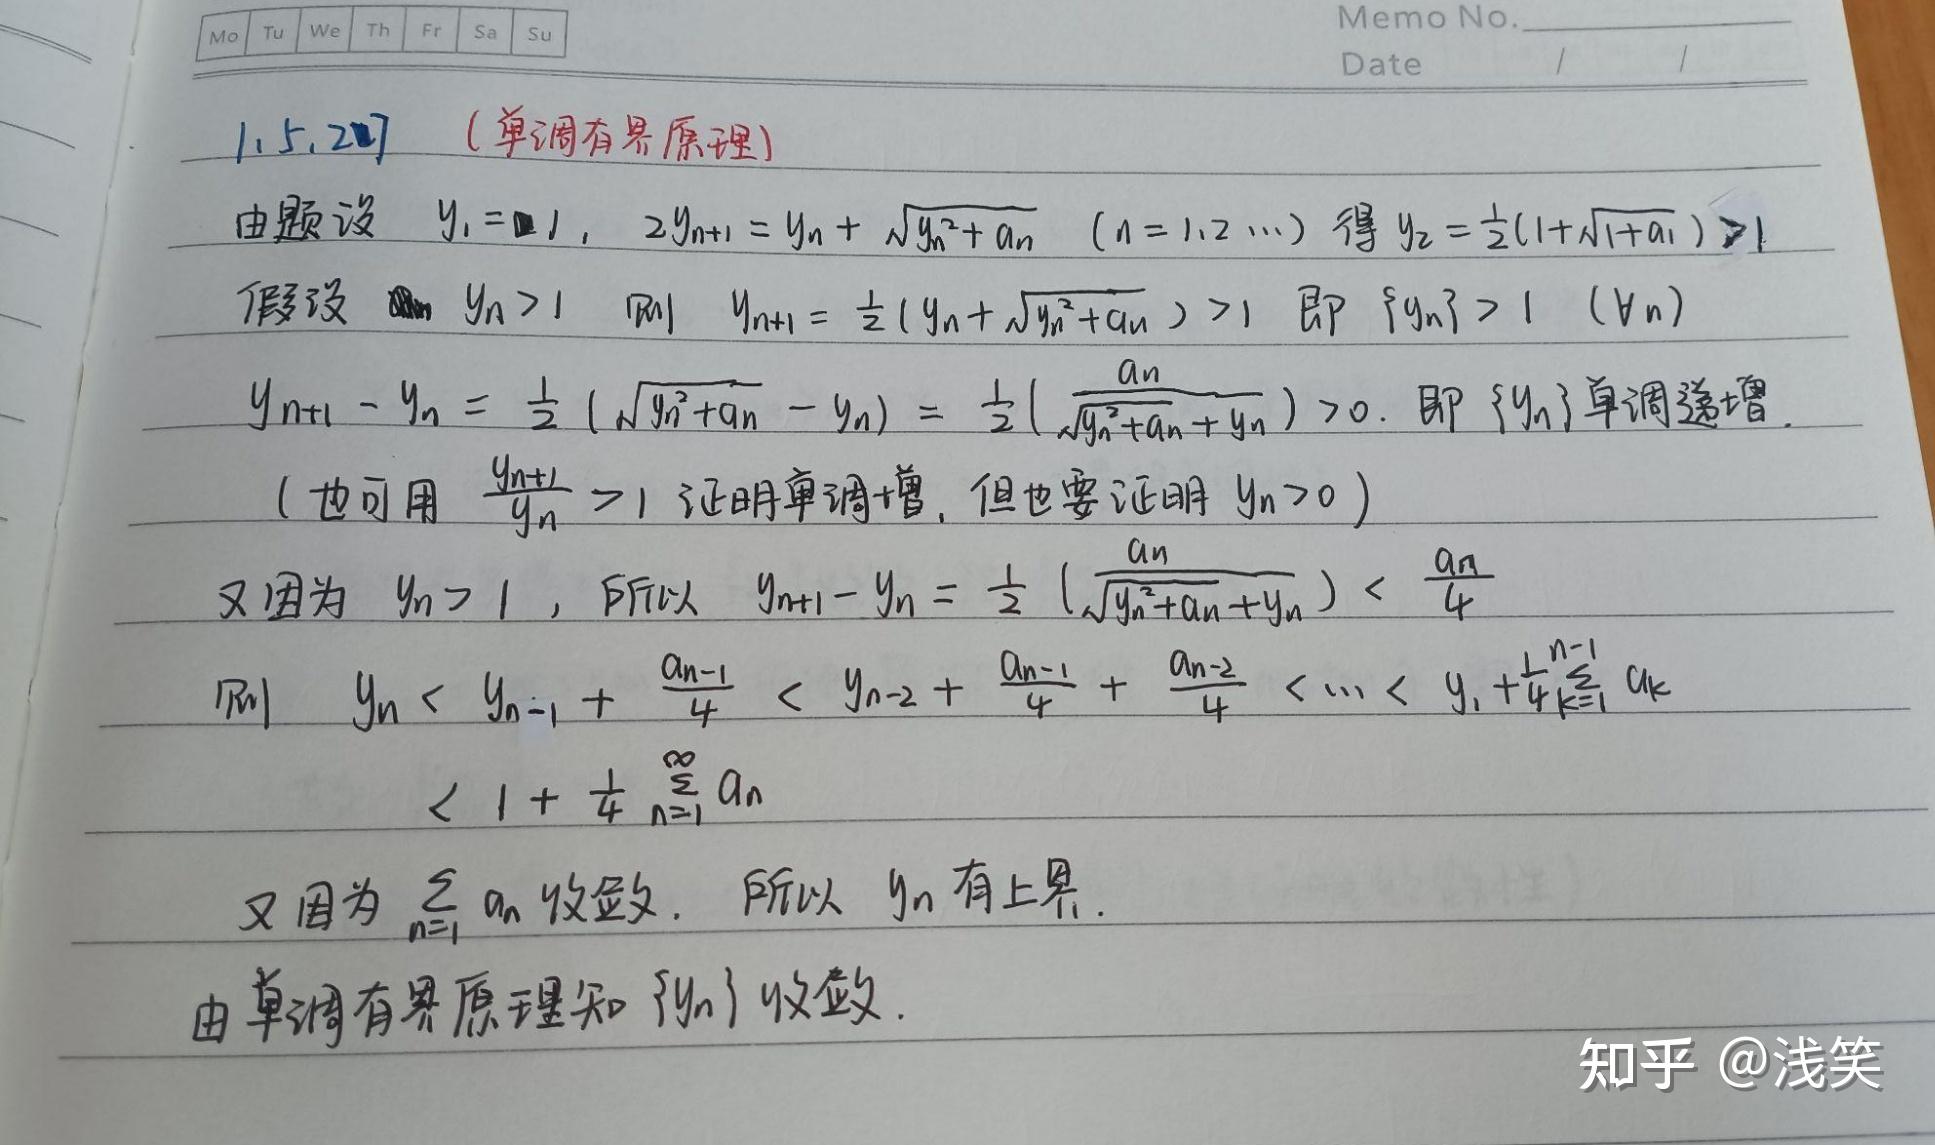 Mo Tu We Th Fr Sa Su
Memo No.
Date / /
1.5.27 (单调有界原理)
由题设 y₁=1, 2yₙ₊₁=yₙ+√(yₙ²+aₙ) (n=1,2…) 得 y₂=½(1+√(1+a₁))>1
假设 yₙ>1 则 yₙ₊₁=½(yₙ+√(yₙ²+aₙ))>1 即 {yₙ}>1 (∀n)
yₙ₊₁-yₙ=½(√(yₙ²+aₙ)-yₙ)=½(aₙ/(√(yₙ²+aₙ)+yₙ))>0. 即{yₙ}单调递增.
(也可用 yₙ₊₁/yₙ>1 证明单调增, 但也要证明 yₙ>0)
又因为 yₙ>1, 所以 yₙ₊₁-yₙ=½(aₙ/(√(yₙ²+aₙ)+yₙ))<aₙ/4
则 yₙ<yₙ₋₁+aₙ₋₁/4<yₙ₋₂+aₙ₋₁/4+aₙ₋₂/4<…<y₁+¼∑ₖ₌₁ⁿ⁻¹aₖ
<1+¼∑ₙ₌₁^∞ aₙ
又因为 ∑ₙ₌₁ aₙ 收敛. 所以 yₙ 有上界.
由单调有界原理知{yₙ}收敛.
知乎 @浅笑